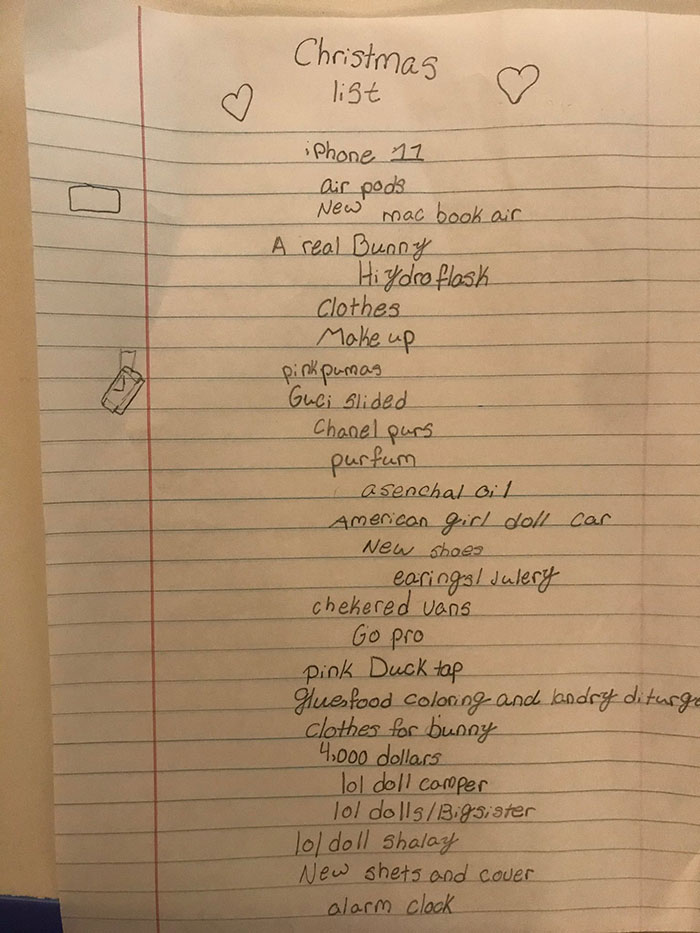 Christmas
list
iPhone 11
air pods
New mac book air
A real Bunny
Hiydroflask
Clothes
Make up
pink pumas
Guci slided
Chanel purs
purfum
asenchal oil
American girl doll car
New shoes
earings/julery
chekered vans
Go pro
pink Duck tap
glue,food coloring and landry diturge
clothes for bunny
4,000 dollars
lol doll camper
lol dolls/Bigsister
lol doll shalay
New shets and cover
alarm clock